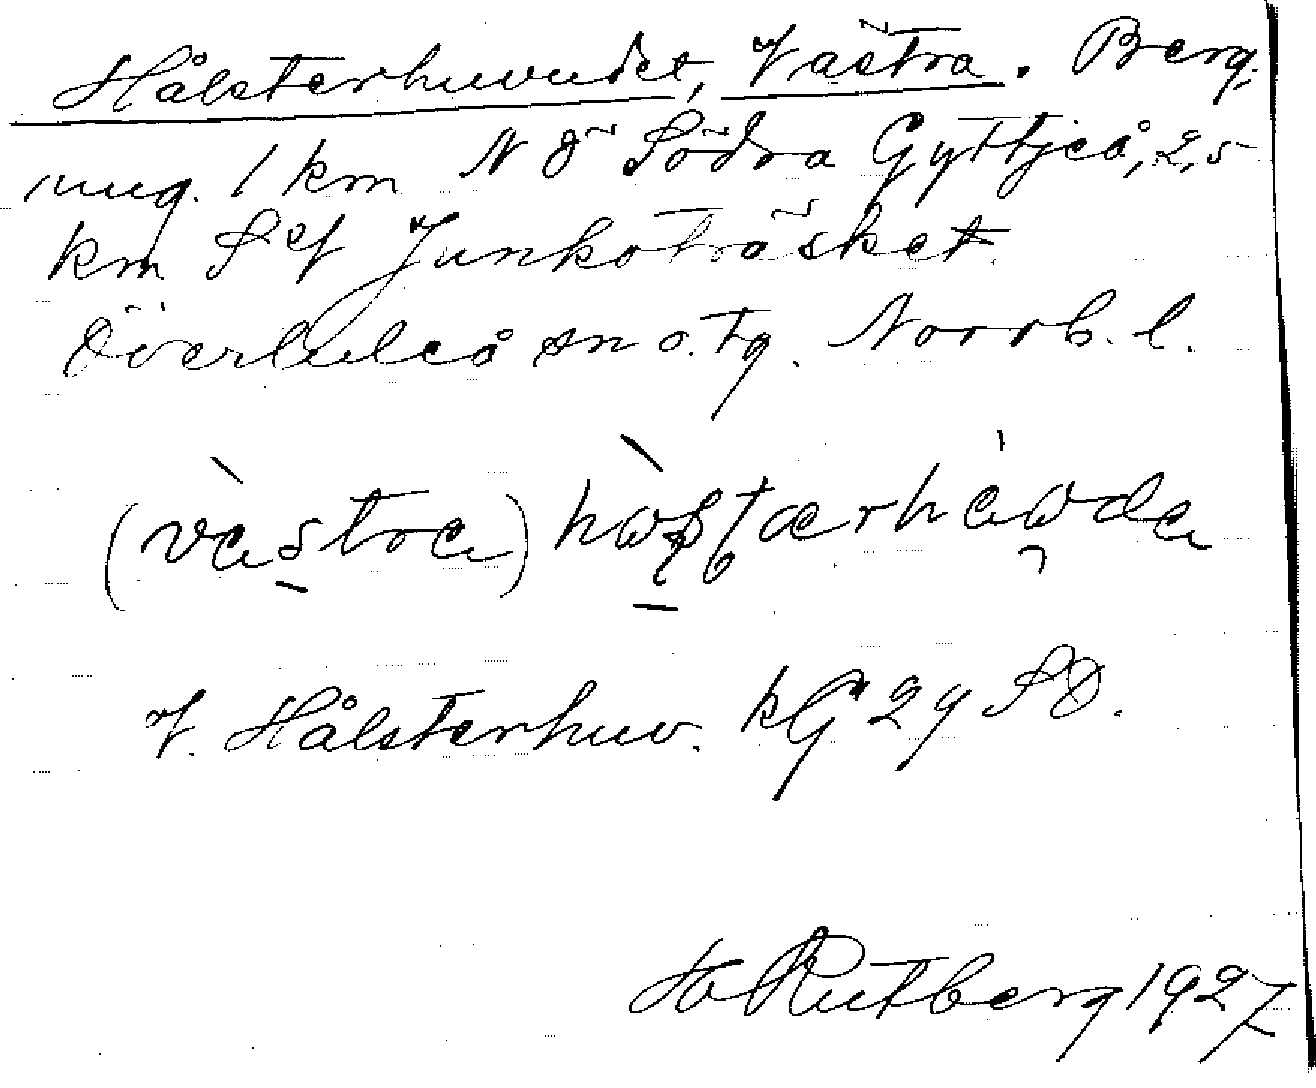 Hålsterhuvudet, Västra. Berg,
ung. 1 km NÖ Södra Gyttjeå, 2,5
km SV Junkoträsket.
Överluleå sn o. tg. Norrb. l.
(västra)
V. Hålsterhuv. kG 29 SO.
H Rutberg 1927